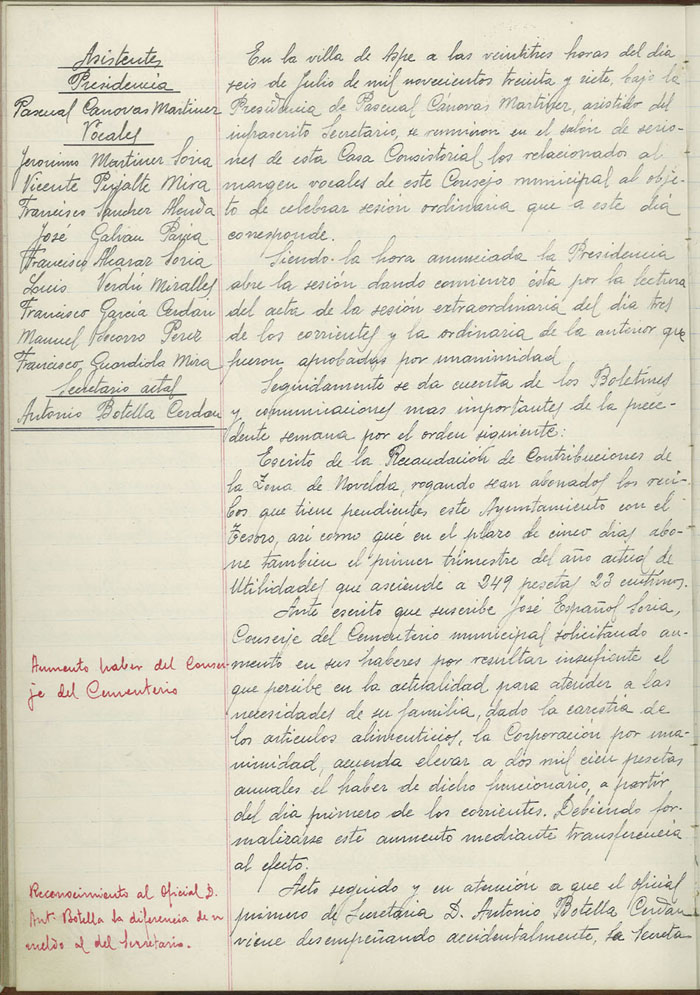 Asistentes
Presidencia
Pascual Canovas Martinez
Vocales
Jeronimo Martinez Soria
Vicente Pujalte Mira
Francisco Sanchez Alenda
José Galvan Pavia
Francisco Alcaraz Soria
Louis Verdú Miralles
Francisco García Cerdan
Manuel Socorro Perez
Francisco Guardiola Mira
Secretario actal
Antonio Botella Cerdan
En la villa de Aspe a las veintitres horas del dia
seis de Julio de mil novecientos treinta y siete, bajo la
Presidencia de Pascual Canovas Martinez, asistido del
infrascrito Secretario, se reunieron en el salón de sesio-
nes de esta Casa Consistorial los relacionados al
margen vocales de este Consejo municipal al obje-
to de celebrar sesión ordinaria que a este dia
corresponde.
Siendo la hora anunciada la Presidencia
abre la sesión dando comienzo ésta por la lectura
del acta de la sesión extraordinaria del dia tres
de los corrientes y la ordinaria de la anterior que
fueron aprobadas por unanimidad.
Seguidamente se da cuenta de los Boletines
y comunicaciones mas importantes de la prece-
dente semana por el orden siguiente:
Escrito de la Recaudación de Contribuciones de
la Zona de Novelda, rogando sean abonados los reci-
bos que tiene pendientes este Ayuntamiento con el
Tesoro, así como que en el plazo de cinco dias abo-
ne tambien el primer trimestre del año actual de
Utilidades que asciende a 249 pesetas 23 centimos.
Ante escrito que suscribe José Español Soria,
Conserje del Cementerio municipal solicitando au-
mento en sus haberes por resultar insuficiente el
que percibe en la actualidad para atender a las
necesidades de su familia, dado la carestía de
los articulos alimenticios, la Corporación por una-
nimidad, acuerda elevar a dos mil cien pesetas
anuales el haber de dicho funcionario, a partir
del dia primero de los corrientes. Debiendo for-
malizarse este aumento mediante transferencia
al efecto.
Acto seguido y en atención a que el oficial
primero de Secretaria D. Antonio Botella Cerdan
viene desempeñando accidentalmente, la Secreta
Aumento haber del Conser-
je del Cementerio
Reconocimiento al Oficial D.
Ant. Botella la diferencia de
sueldo del Secretario.